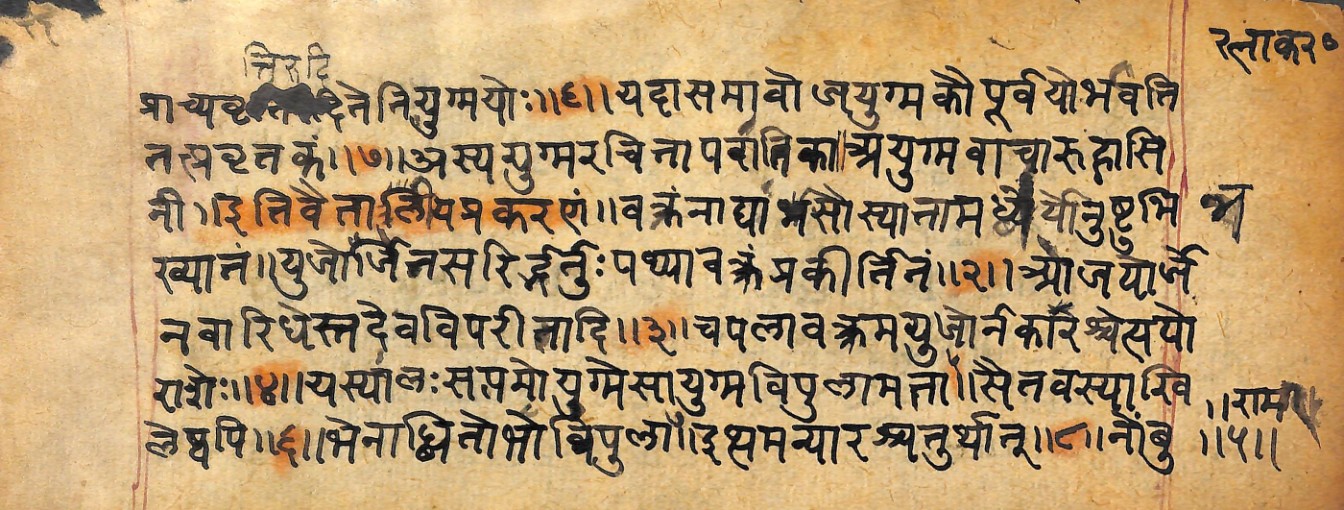 रत्नाकर॰
त्तिरुदि
प्राच्यवृत्तिरुदितेतियुग्मयोः॥६॥यदासमावोजयुग्मकौपूर्वयोर्भवति
तत्प्रवृत्तकं॥७॥अस्ययुग्मरचितापरांतिका॥अयुग्मवाचारुहासि
नी॥इतिवैतालीयप्रकरणं॥वक्त्रंनाद्यान्नसौस्यातामब्धेर्योनुष्टुभि
ख्यातं॥युजोर्जेनसरिद्भर्तुःपथ्यावक्त्रंप्रकीर्त्तितं॥२॥ओजयोर्जे
नवारिधेस्तदेवविपरीतादि॥३॥चपलावक्त्रमयुजोर्नकारश्चेत्पयो
राशेः॥४॥यस्यांलःसप्तमोयुग्मेसायुग्मविपुलामता॥सैतवस्याखि
लेष्वपि॥६॥भेनाब्धितोभाविपुला॥इत्थमन्यारश्चतुर्थात्॥८॥नोंबु
॥राम
॥५॥